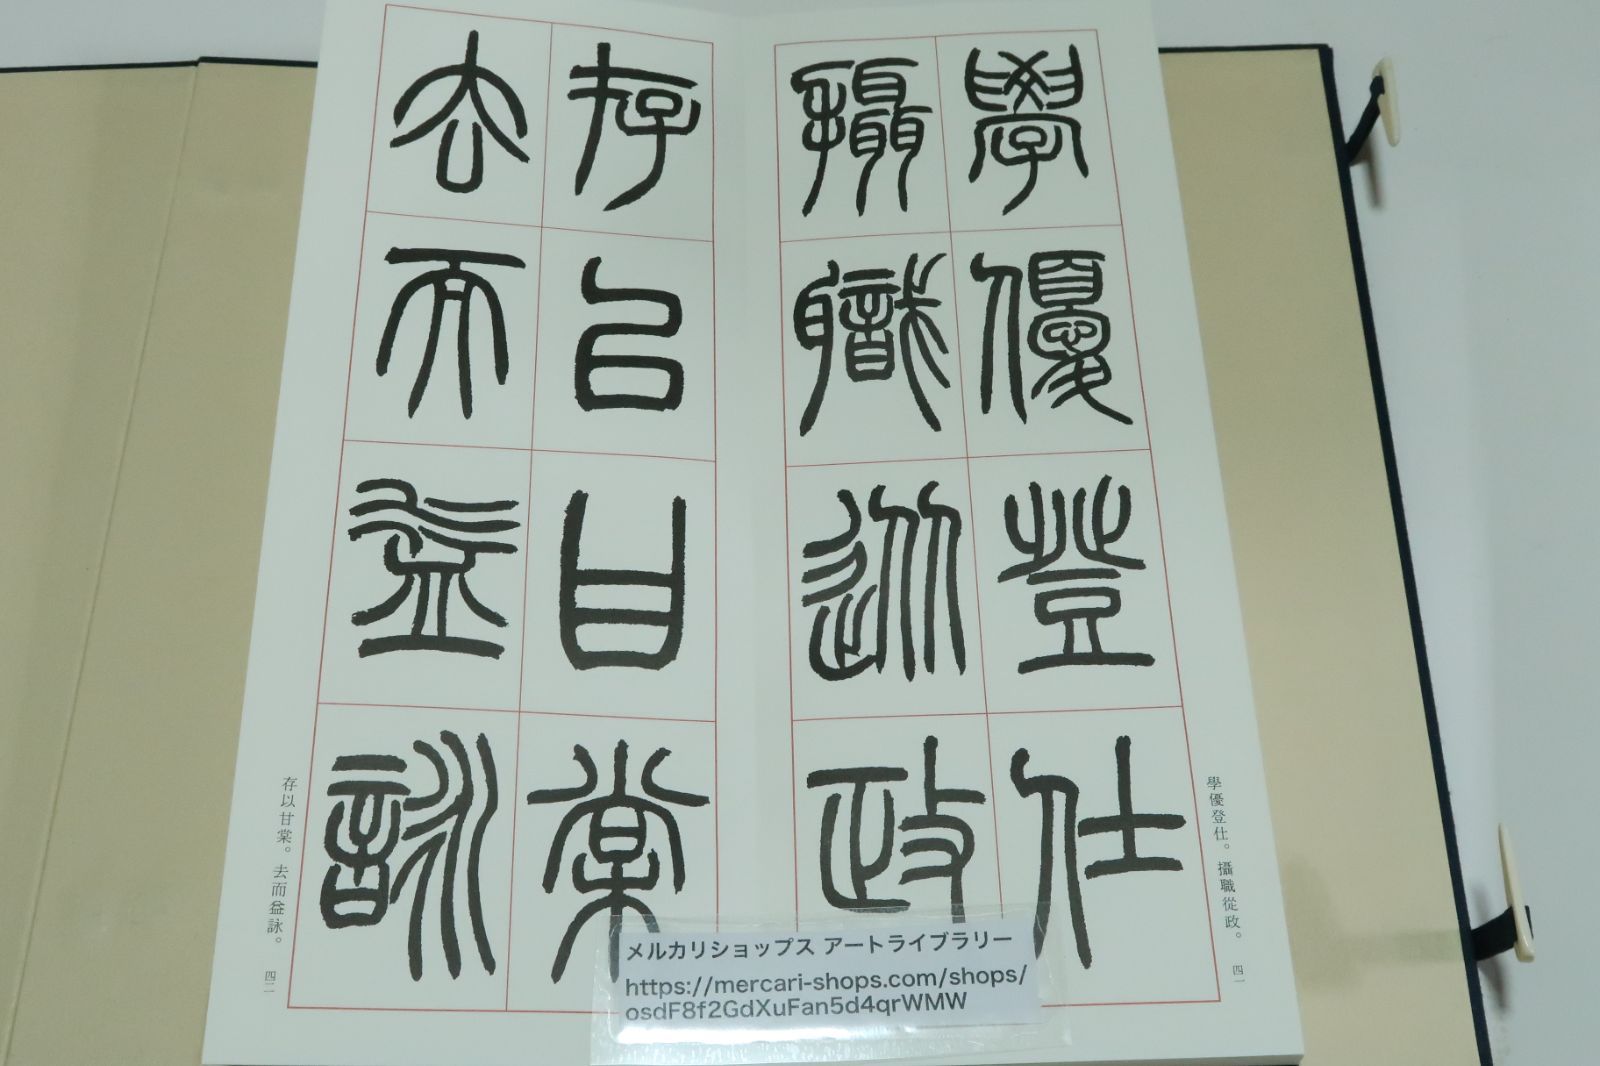 學優登仕
攝職從政
存以甘棠
去而益詠
學優登仕。攝職從政。
四一
存以甘棠。去而益詠。
四二
メルカリショップス アートライブラリー
https://mercari-shops.com/shops/
osdF8f2GdXuFan5d4qrWMW